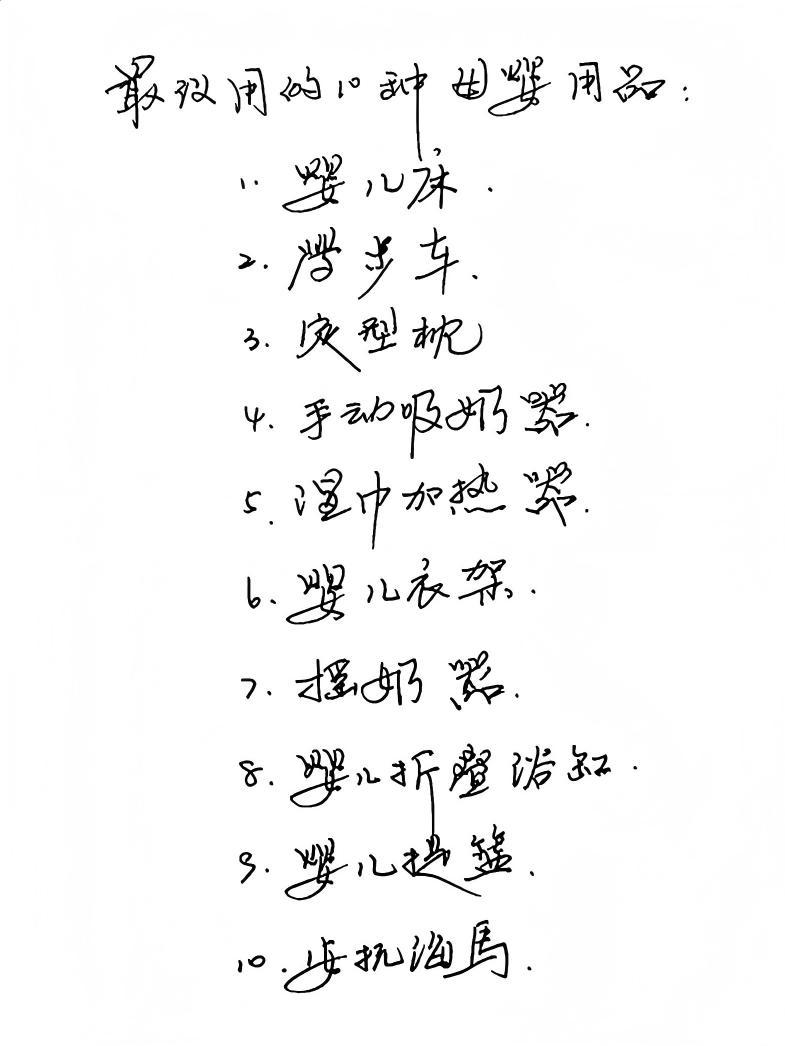 最没用的10种母婴用品:
1. 婴儿床.
2. 学步车.
3. 定型枕
4. 手动吸奶器.
5. 湿巾加热器.
6. 婴儿衣架.
7. 摇奶器.
8. 婴儿折叠浴缸.
9. 婴儿提篮.
10. 安抚海馬.